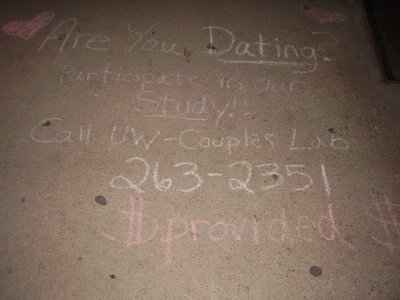 Are You Dating?
Participate in our
Study!!
Call UW-Couples Lab
263-2351
$provided $